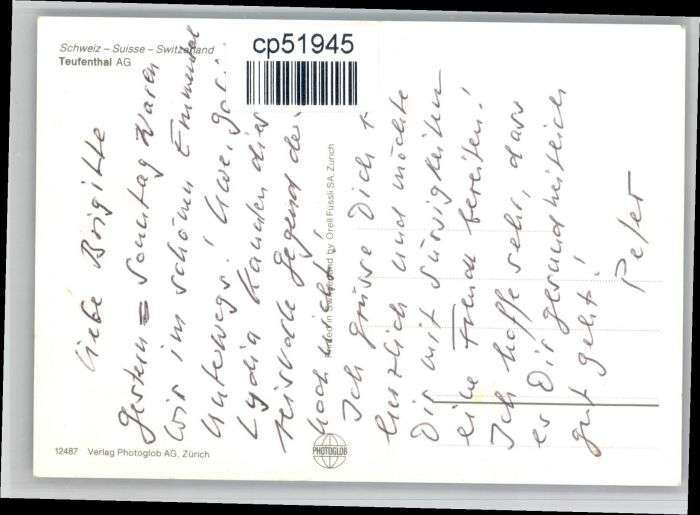 Schweiz – Suisse – Switzerland
Teufenthal AG
cp51945
Liebe Brigitte
Gestern = Sonntag waren
wir im schönen Emmental
unterwegs! Uwe,
Lydia kannten die
reizvolle Gegend
noch nicht!
Ich grüsse Dich
herzlich und möchte
Dir mit Süssigkeiten
eine Freude bereiten!
Ich hoffe sehr, dass
es Dir gesundheitlich
gut geht!
Peter
Printed in Switzerland by Orell Füssli SA Zürich
12487 Verlag Photoglob AG, Zürich
PHOTOGLOB